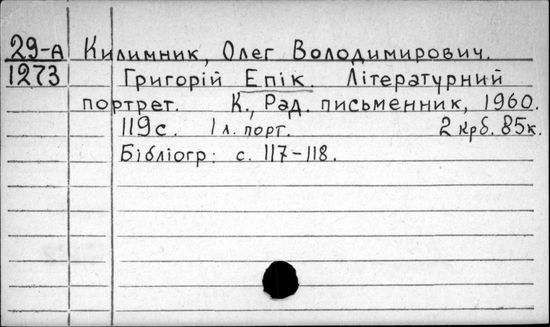 29-А Килимник, Олег Володимирович.
1273 Григорій Епік. Літературний
портрет. К., Рад. письменник, 1960.
119 с. 1 л. порт. 2 крб. 85к.
Бібліогр: с. 117-118.